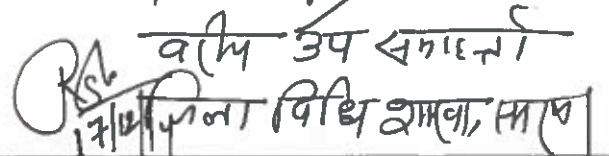 वरीय उप समाहर्त्ता
जिला विधि शाखा, सारण